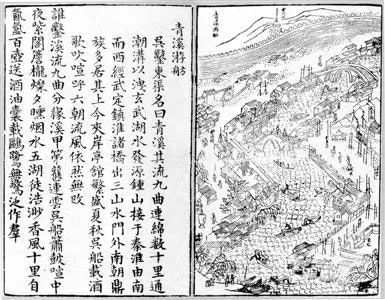 青溪游舫
青溪游舫
吳鑿東渠名曰青溪其流九曲連綿數十里通
潮溝以洩玄武湖水發源鍾山接于秦淮由南
而西經武定鎮淮諸橋出三山水門外南朝鼎
族多居其上今夾岸亭館繁盛夏秋吳船載酒
歌吹喧呼六朝流風依然無改
誰鑿溪流九曲分緣溪甲第矗連雲吳船簫鼓喧中
夜紫閣簷櫳燦夕曛烟水五湖徒浩渺香風十里自
氤氳百壺送酒油囊載鷗鷺無驚泛作羣